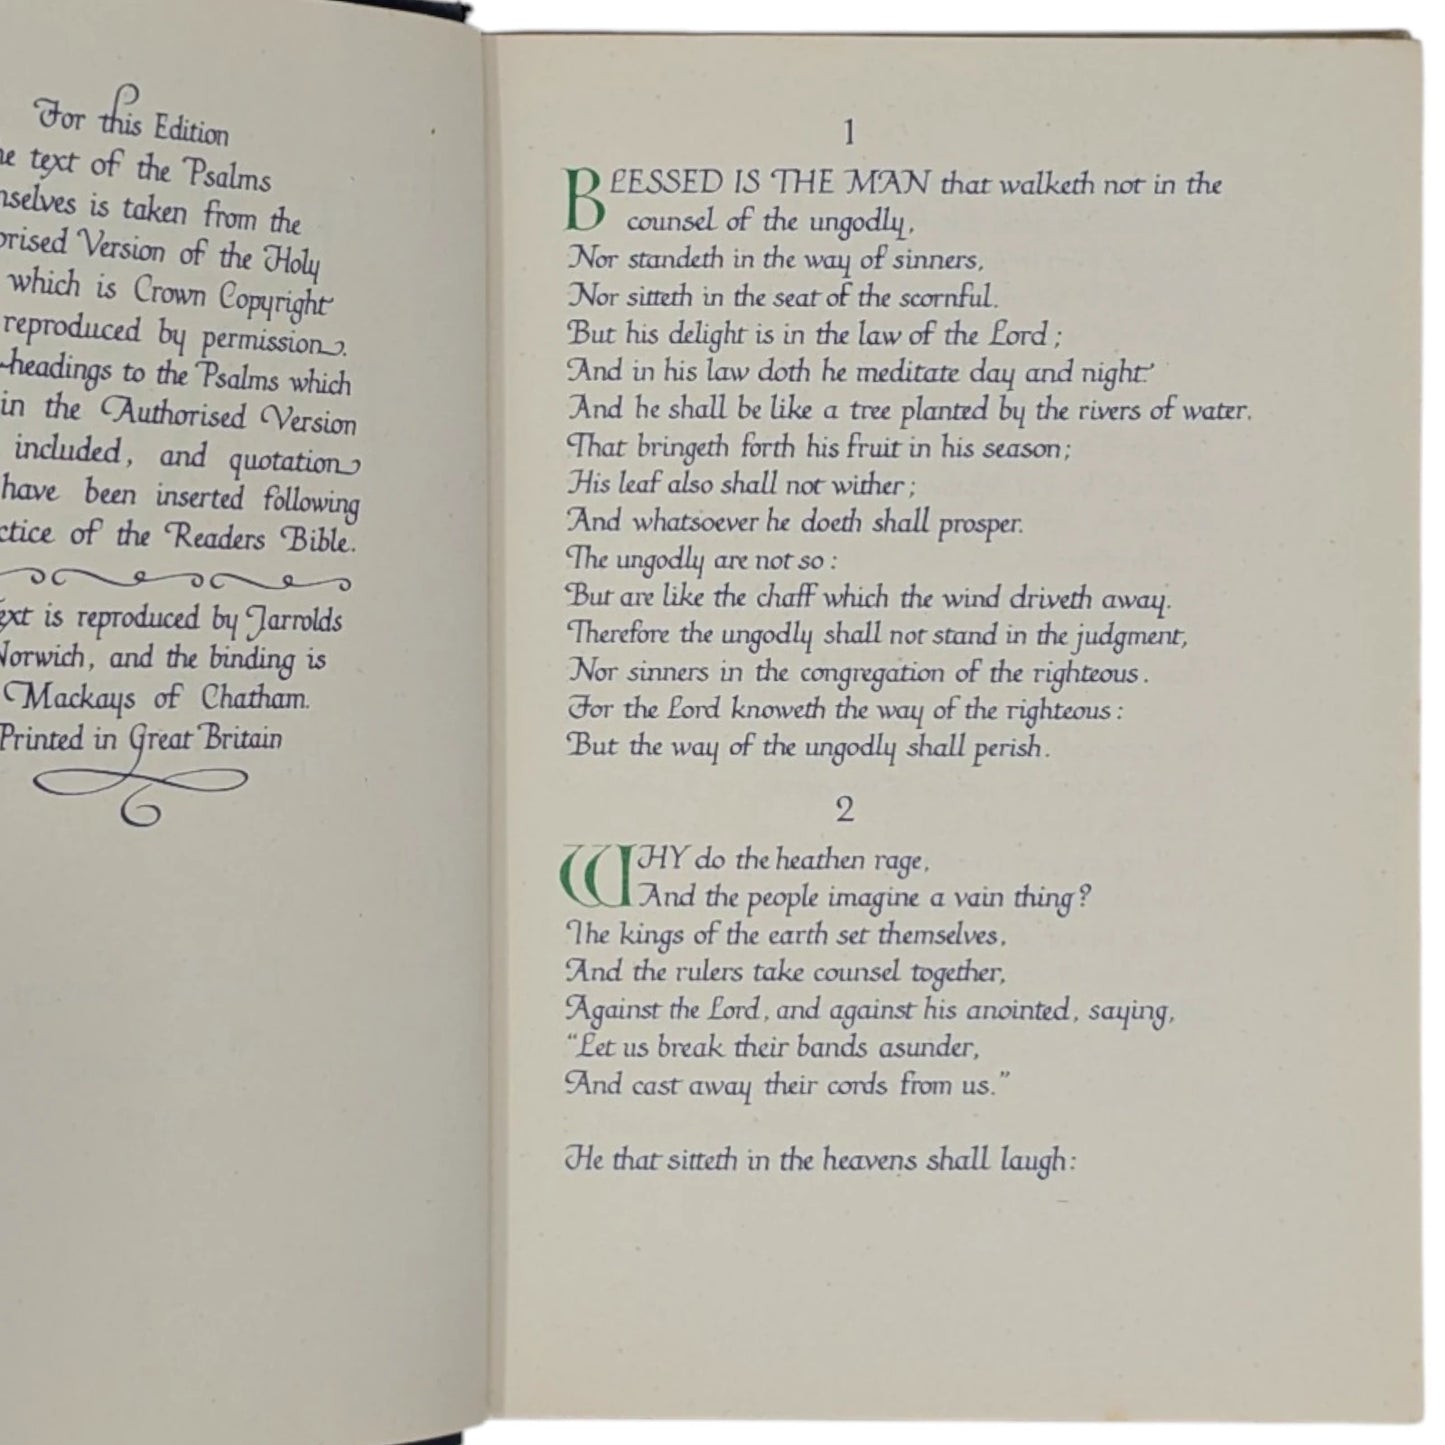 For this Edition
text of the Psalms
is taken from the
Version of the Holy
which is Crown Copyright
reproduced by permission.
headings to the Psalms which
in the Authorised Version
included, and quotation
have been inserted following
of the Readers Bible.
is reproduced by Jarrolds
Norwich, and the binding is
Mackays of Chatham.
Printed in Great Britain
1
BLESSED IS THE MAN that walketh not in the
counsel of the ungodly,
Nor standeth in the way of sinners,
Nor sitteth in the seat of the scornful.
But his delight is in the law of the Lord;
And in his law doth he meditate day and night.
And he shall be like a tree planted by the rivers of water,
That bringeth forth his fruit in his season;
His leaf also shall not wither;
And whatsoever he doeth shall prosper.
The ungodly are not so:
But are like the chaff which the wind driveth away.
Therefore the ungodly shall not stand in the judgment,
Nor sinners in the congregation of the righteous.
For the Lord knoweth the way of the righteous:
But the way of the ungodly shall perish.
2
WHY do the heathen rage,
And the people imagine a vain thing?
The kings of the earth set themselves,
And the rulers take counsel together,
Against the Lord, and against his anointed, saying,
“Let us break their bands asunder,
And cast away their cords from us.”
He that sitteth in the heavens shall laugh: